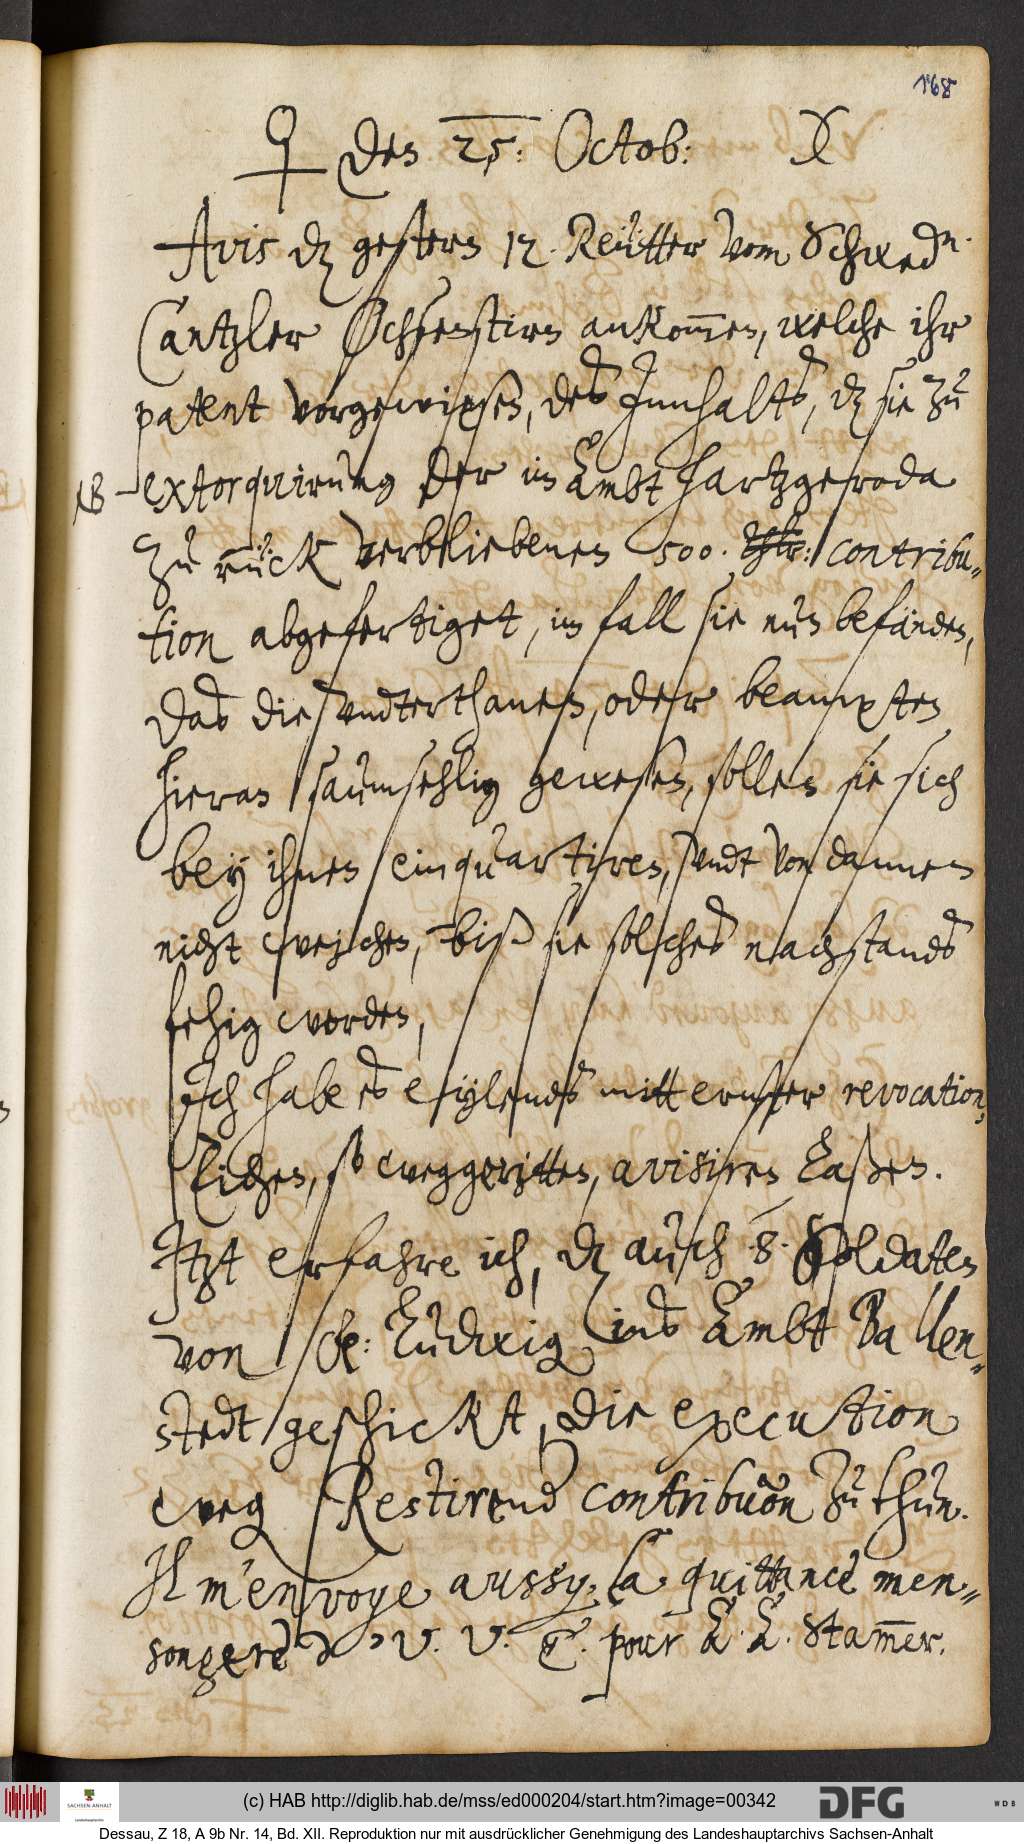 168
♀ den 25: Octob: X
Avis dz gestern 12. Reütter vom Schwedn.
Cantzler Ochsenstirn ankom̅en, welche ihr
patent vorgewiesen, des Jnnhalts, dz sie zu
NB - extorquirung der im Ambt Hartzgeroda
zu rück verbliebenen 500. Thlr: contribu„
tion abgefertiget, im fall sie nun befänden,
das die vndterthanen, oder beampten
hieran saumsehlig gewesen, sollen sie sich
bey ihnen einquartiren, vndt von dannen
nicht weichen, biß sie solches nachstands
fehig worden,
Jch habe es eÿlends mitt ernster revocation,
lichen, so weggeritten, avisiren laßen.
Jtzt erfahre ich, dz auch .8. Soldaten
von Ludwig ins Ambt Ballen„
stedt geschickt, die execution
weg Restirend contribuõn zu thun.
Il m'envoye aussy, la quittance men„
songere d' V. V. pour Stam̅er.
(c) HAB http://diglib.hab.de/mss/ed000204/start.htm?image=00342
SACHSEN-ANHALT
Landeshauptarchiv
DFG
WDB
Dessau, Z 18, A 9b Nr. 14, Bd. XII. Reproduktion nur mit ausdrücklicher Genehmigung des Landeshauptarchivs Sachsen-Anhalt